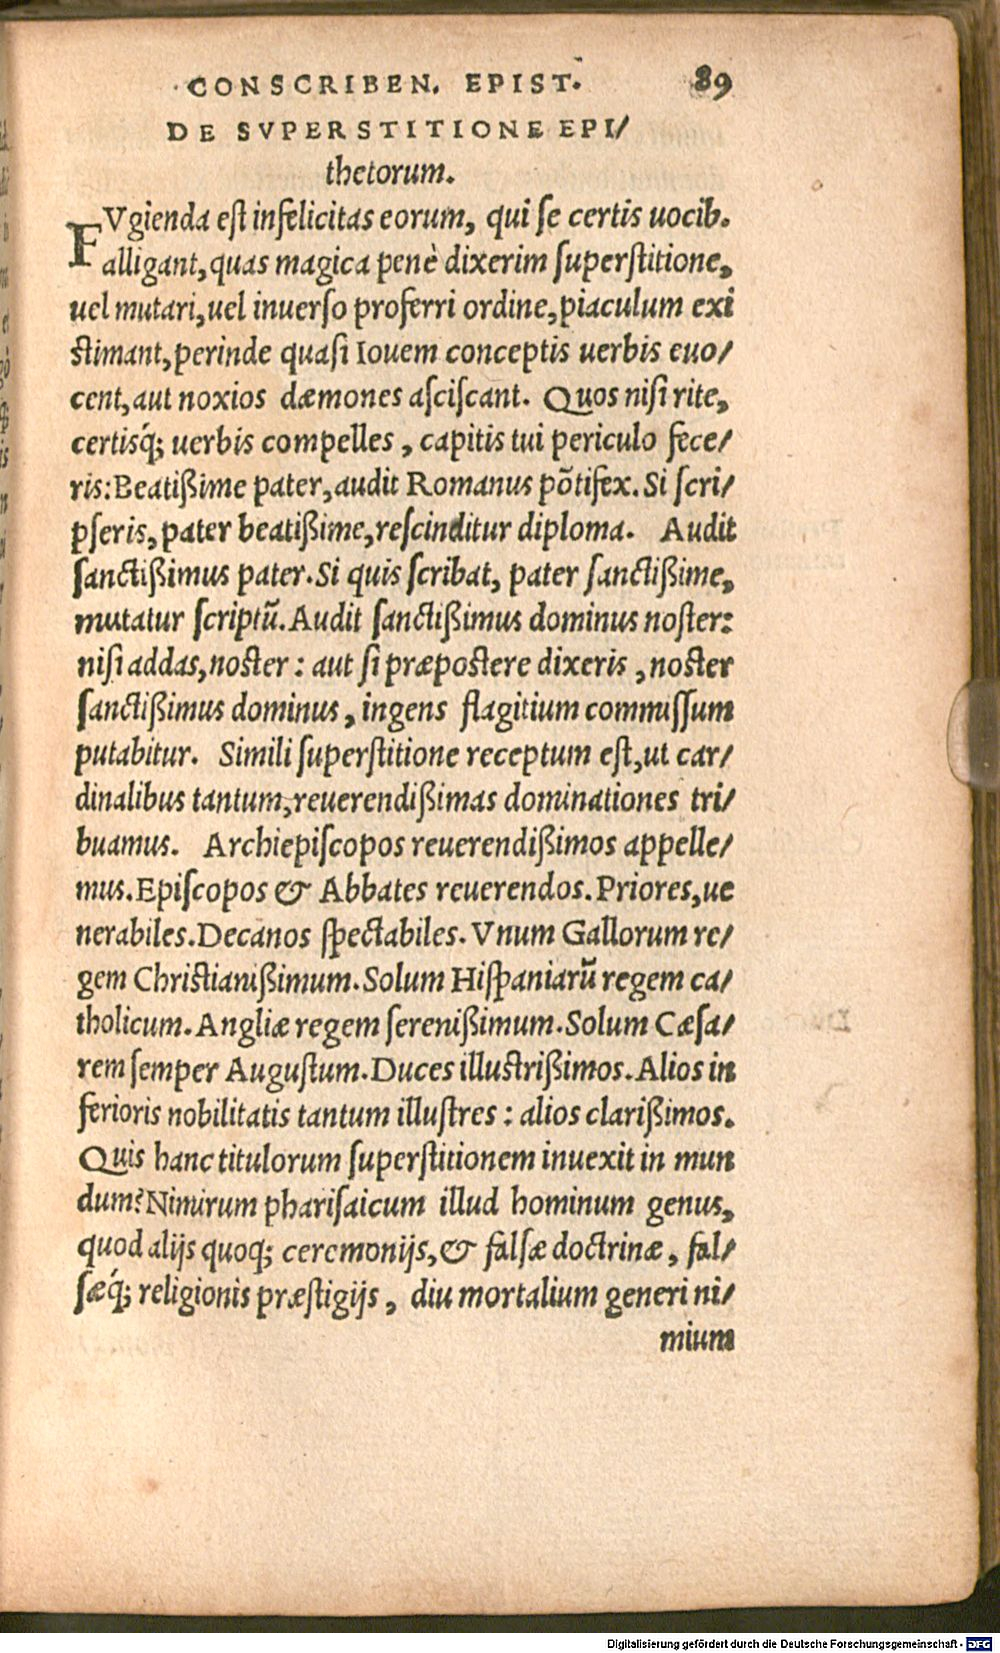 CONSCRIBEN. EPIST. 89
DE SVPERSTITIONE EPI/
thetorum.
FVgienda est infelicitas eorum, qui se certis uocib.
alligant, quas magica penè dixerim superstitione,
uel mutari, uel inuerso proferri ordine, piaculum exi
stimant, perinde quasi Iouem conceptis uerbis euo/
cent, aut noxios dæmones asciscant. Quos nisi rite,
certisq́; uerbis compelles, capitis tui periculo fece/
ris: Beatißime pater, audit Romanus põtifex. Si scri/
pseris, pater beatißime, rescinditur diploma. Audit
sanctißimus pater. Si quis scribat, pater sanctißime,
mutatur scriptũ. Audit sanctißimus dominus noster:
nisi addas, noster: aut si præpostere dixeris, noster
sanctißimus dominus, ingens flagitium commissum
putabitur. Simili superstitione receptum est, ut car/
dinalibus tantum, reuerendißimas dominationes tri/
buamus. Archiepiscopos reuerendißimos appelle/
mus. Episcopos & Abbates reuerendos. Priores, ue
nerabiles. Decanos spectabiles. Vnum Gallorum re/
gem Christianißimum. Solum Hispaniarũ regem ca/
tholicum. Angliæ regem serenißimum. Solum Cæsa/
rem semper Augustum. Duces illustrißimos. Alios in
ferioris nobilitatis tantum illustres: alios clarißimos.
Quis hanc titulorum superstitionem inuexit in mun
dum? Nimirum pharisaicum illud hominum genus,
quod alijs quoq; ceremonijs, & falsæ doctrinæ, fal/
sæq́; religionis præstigijs, diu mortalium generi ni/
mium
Digitalisierung gefördert durch die Deutsche Forschungsgemeinschaft - DFG